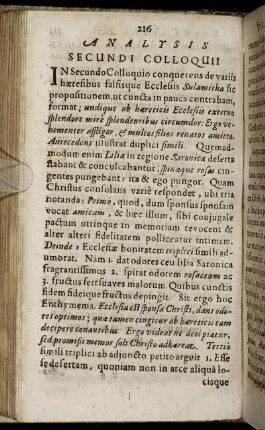 216
ANALYSIS
SECUNDI COLLOQUII
IN Secundo Colloquio conquerens de variis
hæresibus falsisque Ecclesiis Sulamitha sic
propositionem, ut cuncta in pauca contraham,
format; undique ab hæreticis Ecclesiis externo
splendore mirè splendentibus circumdor. Ergo ve-
hementer affligor, & multos filios renatos amitto.
Antecedens illustrat duplici simili. Quemad-
modum enim Lilia in regione Saronica deserta
stabant & conculcabantur, spinæque rosas cin-
gentes pungebant: ita & ego pungor. Quam
Christus consolans variè respondet, ubi tria
notanda: Primò, quod, dum sponsus sponsam
vocat amicam, & hæc illum, sibi conjugale
pactum utrinque in memoriam revocent &
alter alteri fidelitatem polliceatur intimam.
Deinde: Ecclesiæ bonitatem triplici simili ad-
umbrat. Nam 1. dat odores ceu lilia Saronica
fragrantissimos 2. spirat odorem rosaceum ac
3. fructus fert suaves malorum Quibus cunctis
fidem fideique fructus depingit. Sit ergo hoc
Enthymema. Ecclesia est sponsa Christi, dans odo-
res optimos; quæ tamen cingitur ab hæreticis eam
decipere conantibus. Ergo videat ne decipiatur,
sed promissi memor soli Christo adhæreat. Tertiò
simili triplici ab adjuncto petito arguit 1. Esse
se desertam, quoniam non in arce aliquâ lo-
cisque